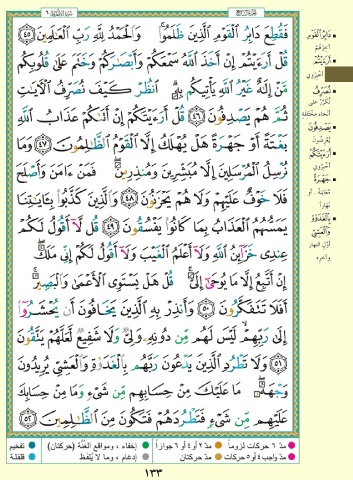 فَقُطِعَ دَابِرُ الْقَوْمِ الَّذِينَ ظَلَمُوا ۚ وَالْحَمْدُ لِلَّهِ رَبِّ الْعَالَمِينَ ٤٥
قُلْ أَرَأَيْتُمْ إِنْ أَخَذَ اللَّهُ سَمْعَكُمْ وَأَبْصَارَكُمْ وَخَتَمَ عَلَىٰ قُلُوبِكُم
مَّنْ إِلَٰهٌ غَيْرُ اللَّهِ يَأْتِيكُم بِهِ ۗ انظُرْ كَيْفَ نُصَرِّفُ الْآيَاتِ
ثُمَّ هُمْ يَصْدِفُونَ ٤٦ قُلْ أَرَأَيْتَكُمْ إِنْ أَتَاكُمْ عَذَابُ اللَّهِ
بَغْتَةً أَوْ جَهْرَةً هَلْ يُهْلَكُ إِلَّا الْقَوْمُ الظَّالِمُونَ ٤٧ وَمَا
نُرْسِلُ الْمُرْسَلِينَ إِلَّا مُبَشِّرِينَ وَمُنذِرِينَ ۖ فَمَنْ آمَنَ وَأَصْلَحَ
فَلَا خَوْفٌ عَلَيْهِمْ وَلَا هُمْ يَحْزَنُونَ ٤٨ وَالَّذِينَ كَذَّبُوا بِآيَاتِنَا
يَمَسُّهُمُ الْعَذَابُ بِمَا كَانُوا يَفْسُقُونَ ٤٩ قُل لَّا أَقُولُ لَكُمْ
عِندِي خَزَائِنُ اللَّهِ وَلَا أَعْلَمُ الْغَيْبَ وَلَا أَقُولُ لَكُمْ إِنِّي مَلَكٌ ۖ
إِنْ أَتَّبِعُ إِلَّا مَا يُوحَىٰ إِلَيَّ ۚ قُلْ هَلْ يَسْتَوِي الْأَعْمَىٰ وَالْبَصِيرُ ۚ
أَفَلَا تَتَفَكَّرُونَ ٥٠ وَأَنذِرْ بِهِ الَّذِينَ يَخَافُونَ أَن يُحْشَرُوا
إِلَىٰ رَبِّهِمْ ۙ لَيْسَ لَهُم مِّن دُونِهِ وَلِيٌّ وَلَا شَفِيعٌ لَّعَلَّهُمْ يَتَّقُونَ
٥١ وَلَا تَطْرُدِ الَّذِينَ يَدْعُونَ رَبَّهُم بِالْغَدَاةِ وَالْعَشِيِّ يُرِيدُونَ
وَجْهَهُ ۖ مَا عَلَيْكَ مِنْ حِسَابِهِم مِّن شَيْءٍ وَمَا مِنْ حِسَابِكَ
عَلَيْهِم مِّن شَيْءٍ فَتَطْرُدَهُمْ فَتَكُونَ مِنَ الظَّالِمِينَ ٥٢
دَابِرُ الْقَوْمِ
آخرهم
أَرَأَيْتُمْ
أخبروني
نُصَرِّفُ
نكرّر على
أنحاء مختلفة
يَصْدِفُونَ
يعرضون
أَرَأَيْتَكُمْ
أخبروني
جَهْرَةً
معاينة، أو
نهاراً
بِالْغَدَاةِ
وَالْعَشِيِّ
أوّل النهار
وآخره
مدّ ٦ حركات لزوماً
مدّ ٢ أو ٤ أو ٦ جوازاً
إخفاء، ومواقع الغُنَّة (حركتان)
تفخيم
مدّ واجب ٤ أو ٥ حركات
مدّ حركتان
إدغام، وما لا يُلفَظ
قلقلة
١٣٣